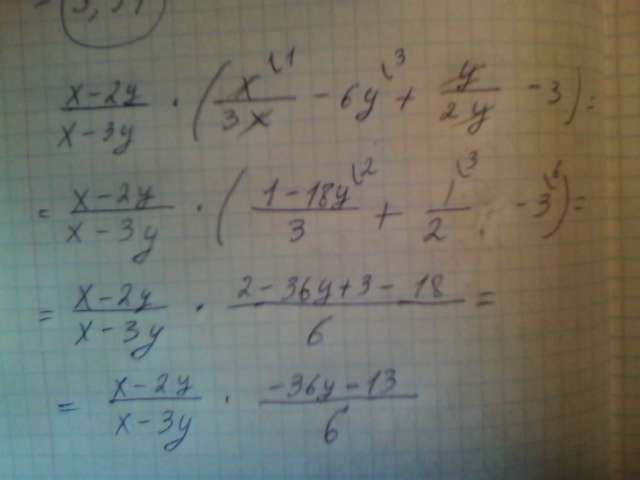 (x-2y)/(x-3y) · (x/3x \1 - 6y \3 + y/2y - 3) =
= (x-2y)/(x-3y) · ((1-18y)/3 \2 + 1/2 \3 - 3 \6) =
= (x-2y)/(x-3y) · (2-36y+3-18)/6 =
= (x-2y)/(x-3y) · (-36y-13)/6